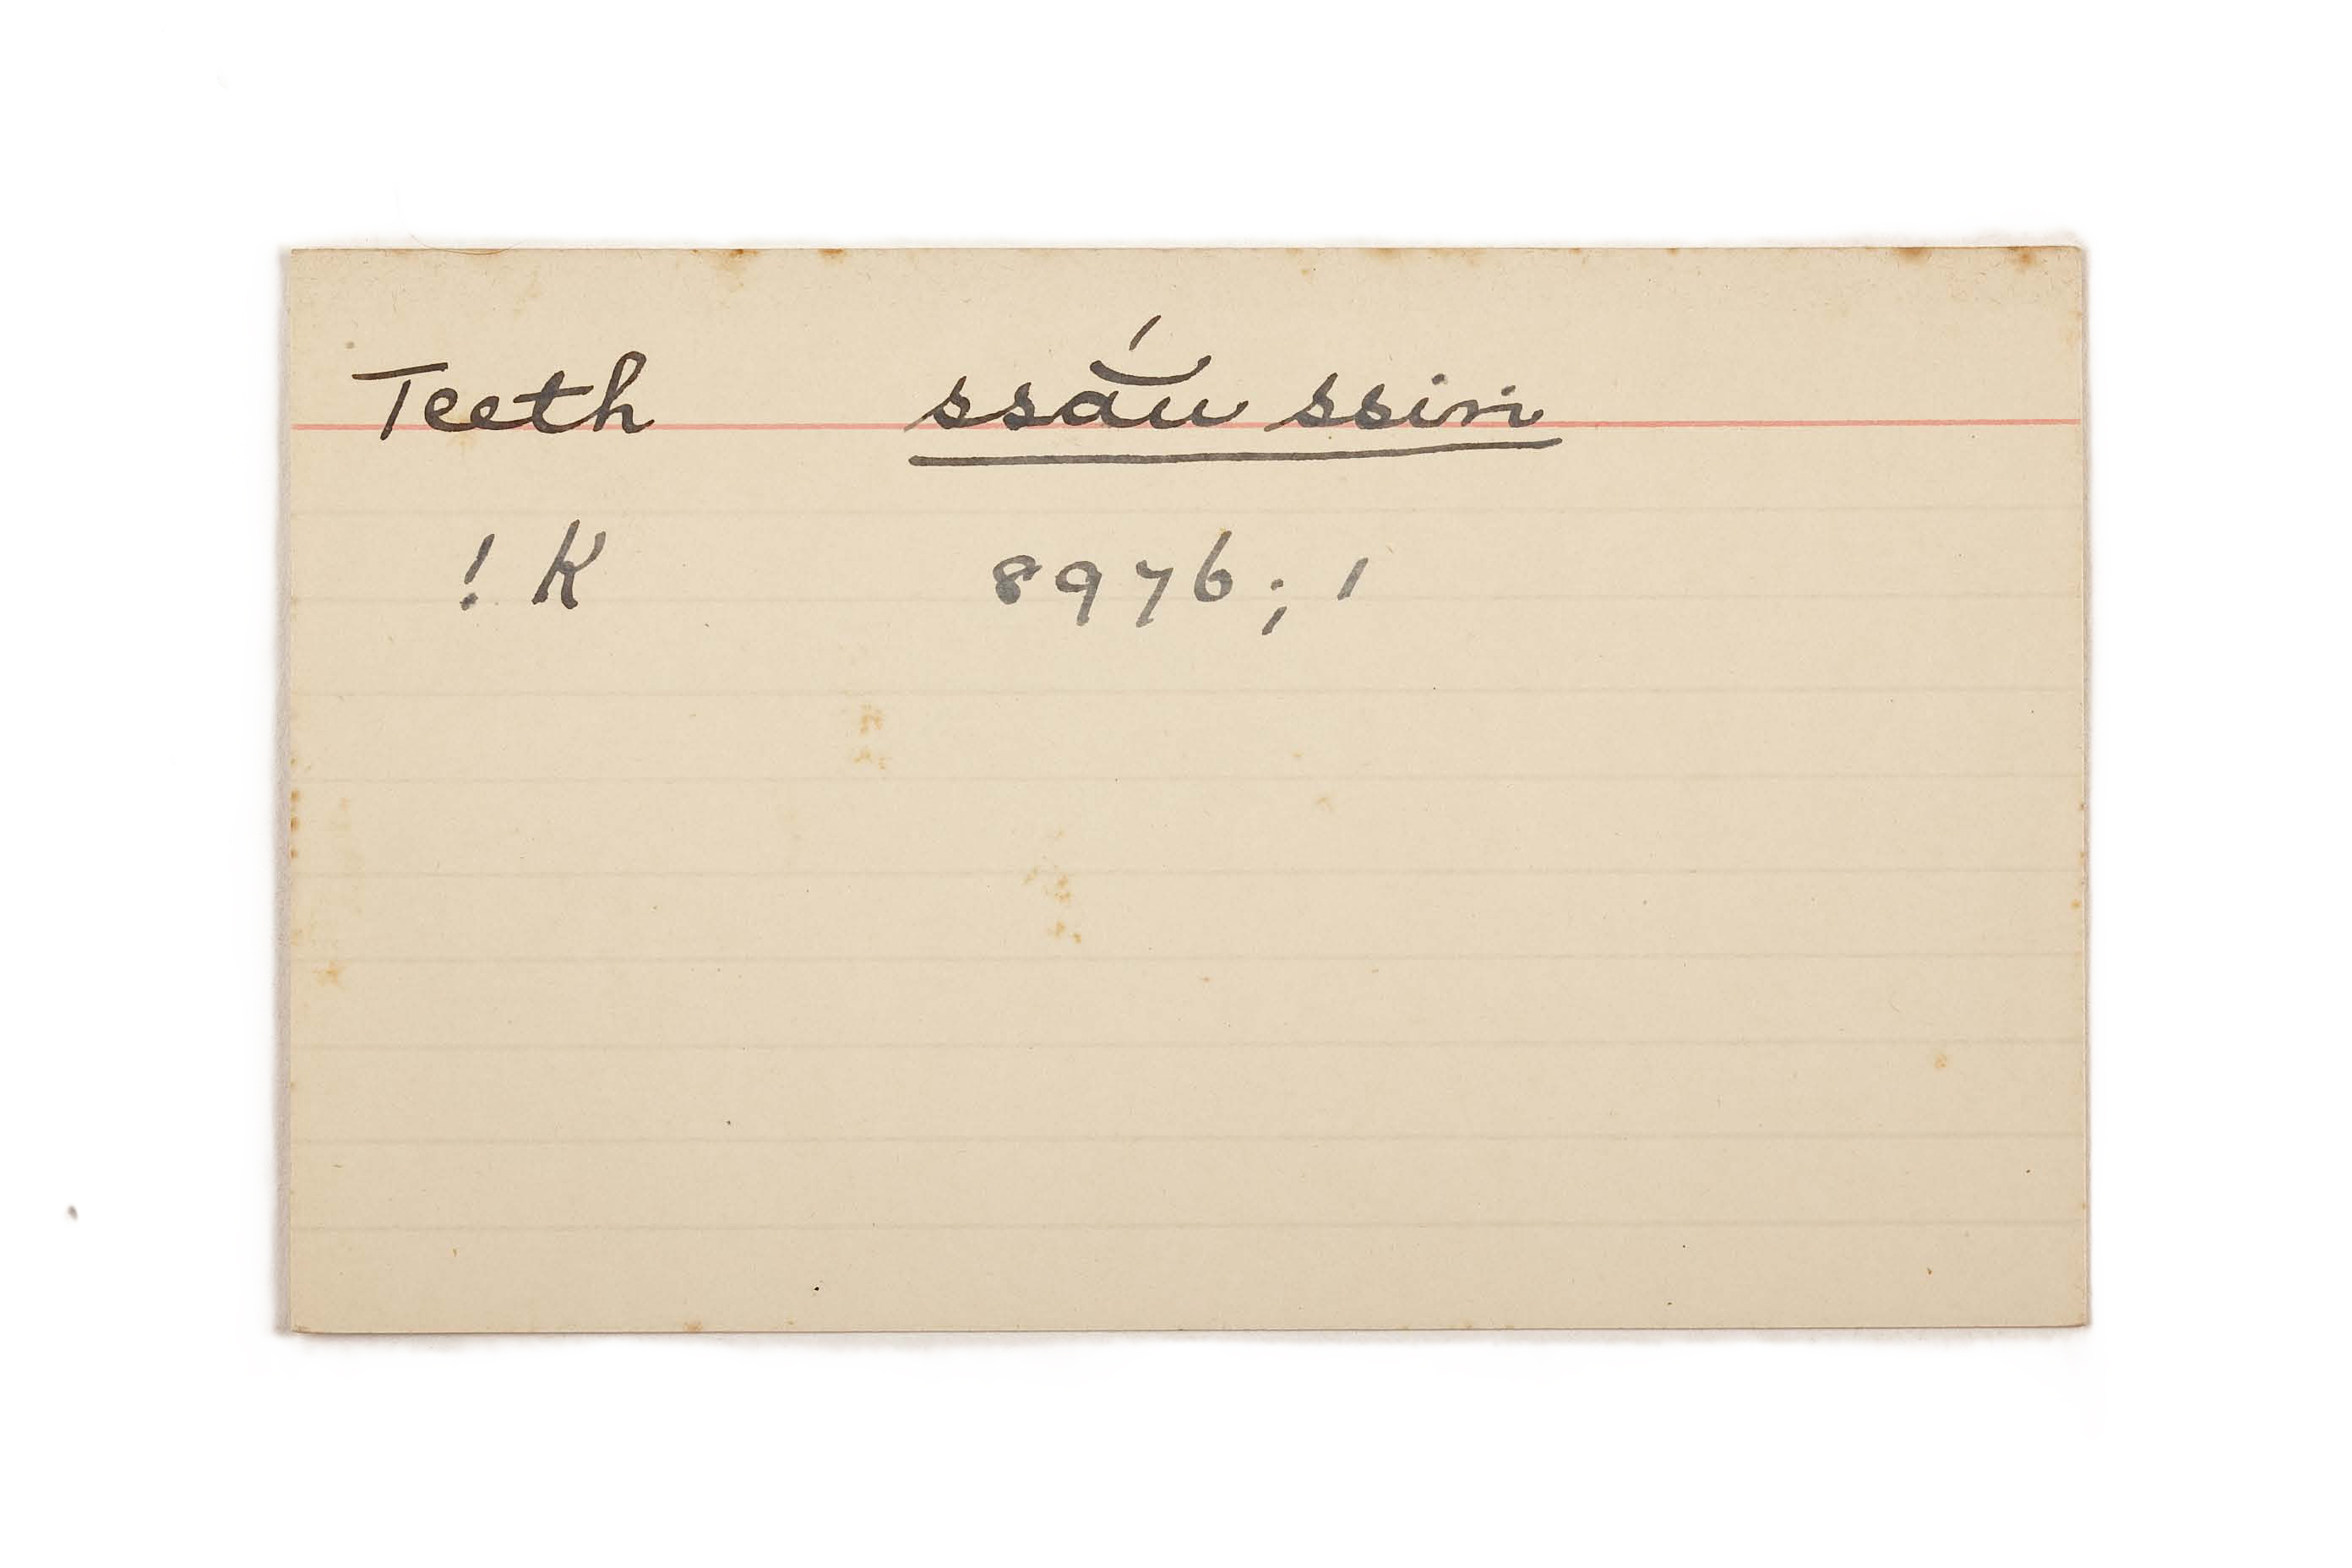 Teeth ssắu ssiri
! K 8976; 1